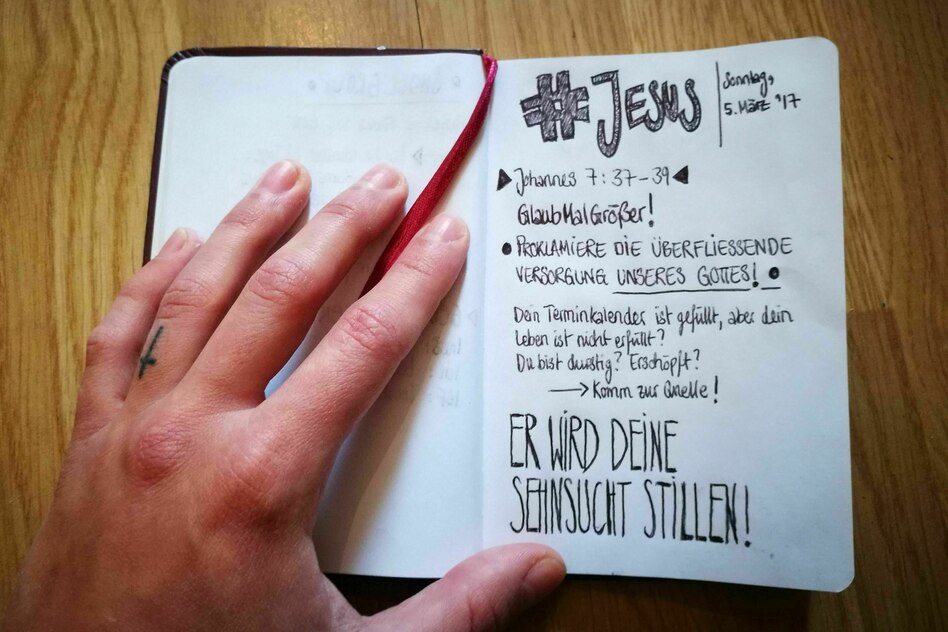 #JESUS
Sonntag,
5. März '17
Johannes 7:37-39
GlaubMalGrößer!
PROKLAMIERE DIE ÜBERFLIESSENDE
VERSORGUNG UNSERES GOTTES!
Dein Terminkalender ist gefüllt, aber dein
Leben ist nicht erfüllt?
Du bist durstig? Erschöpft?
→ Komm zur Quelle!
ER WIRD DEINE
SEHNSUCHT STILLEN!